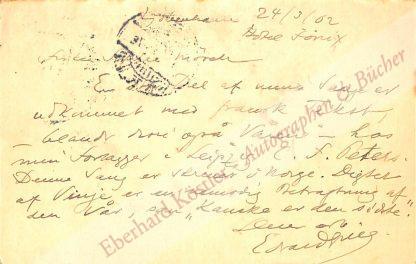 Kjøbenhavn 24/3/02
Hotel Fönix
En Del af mine Sange er
udkommet med fransk Tekst,
blandt dem også Våren, hos
min Forlægger i Leipzig C. F. Peters.
Denne Sang er skrevet i Norge. Digtet
af Vinje er en vemodig Betragtning af
den Vår, som "Kanske er den sidste".
Deres
Edvard Grieg
Eberhard Köstler Autographen & Bücher